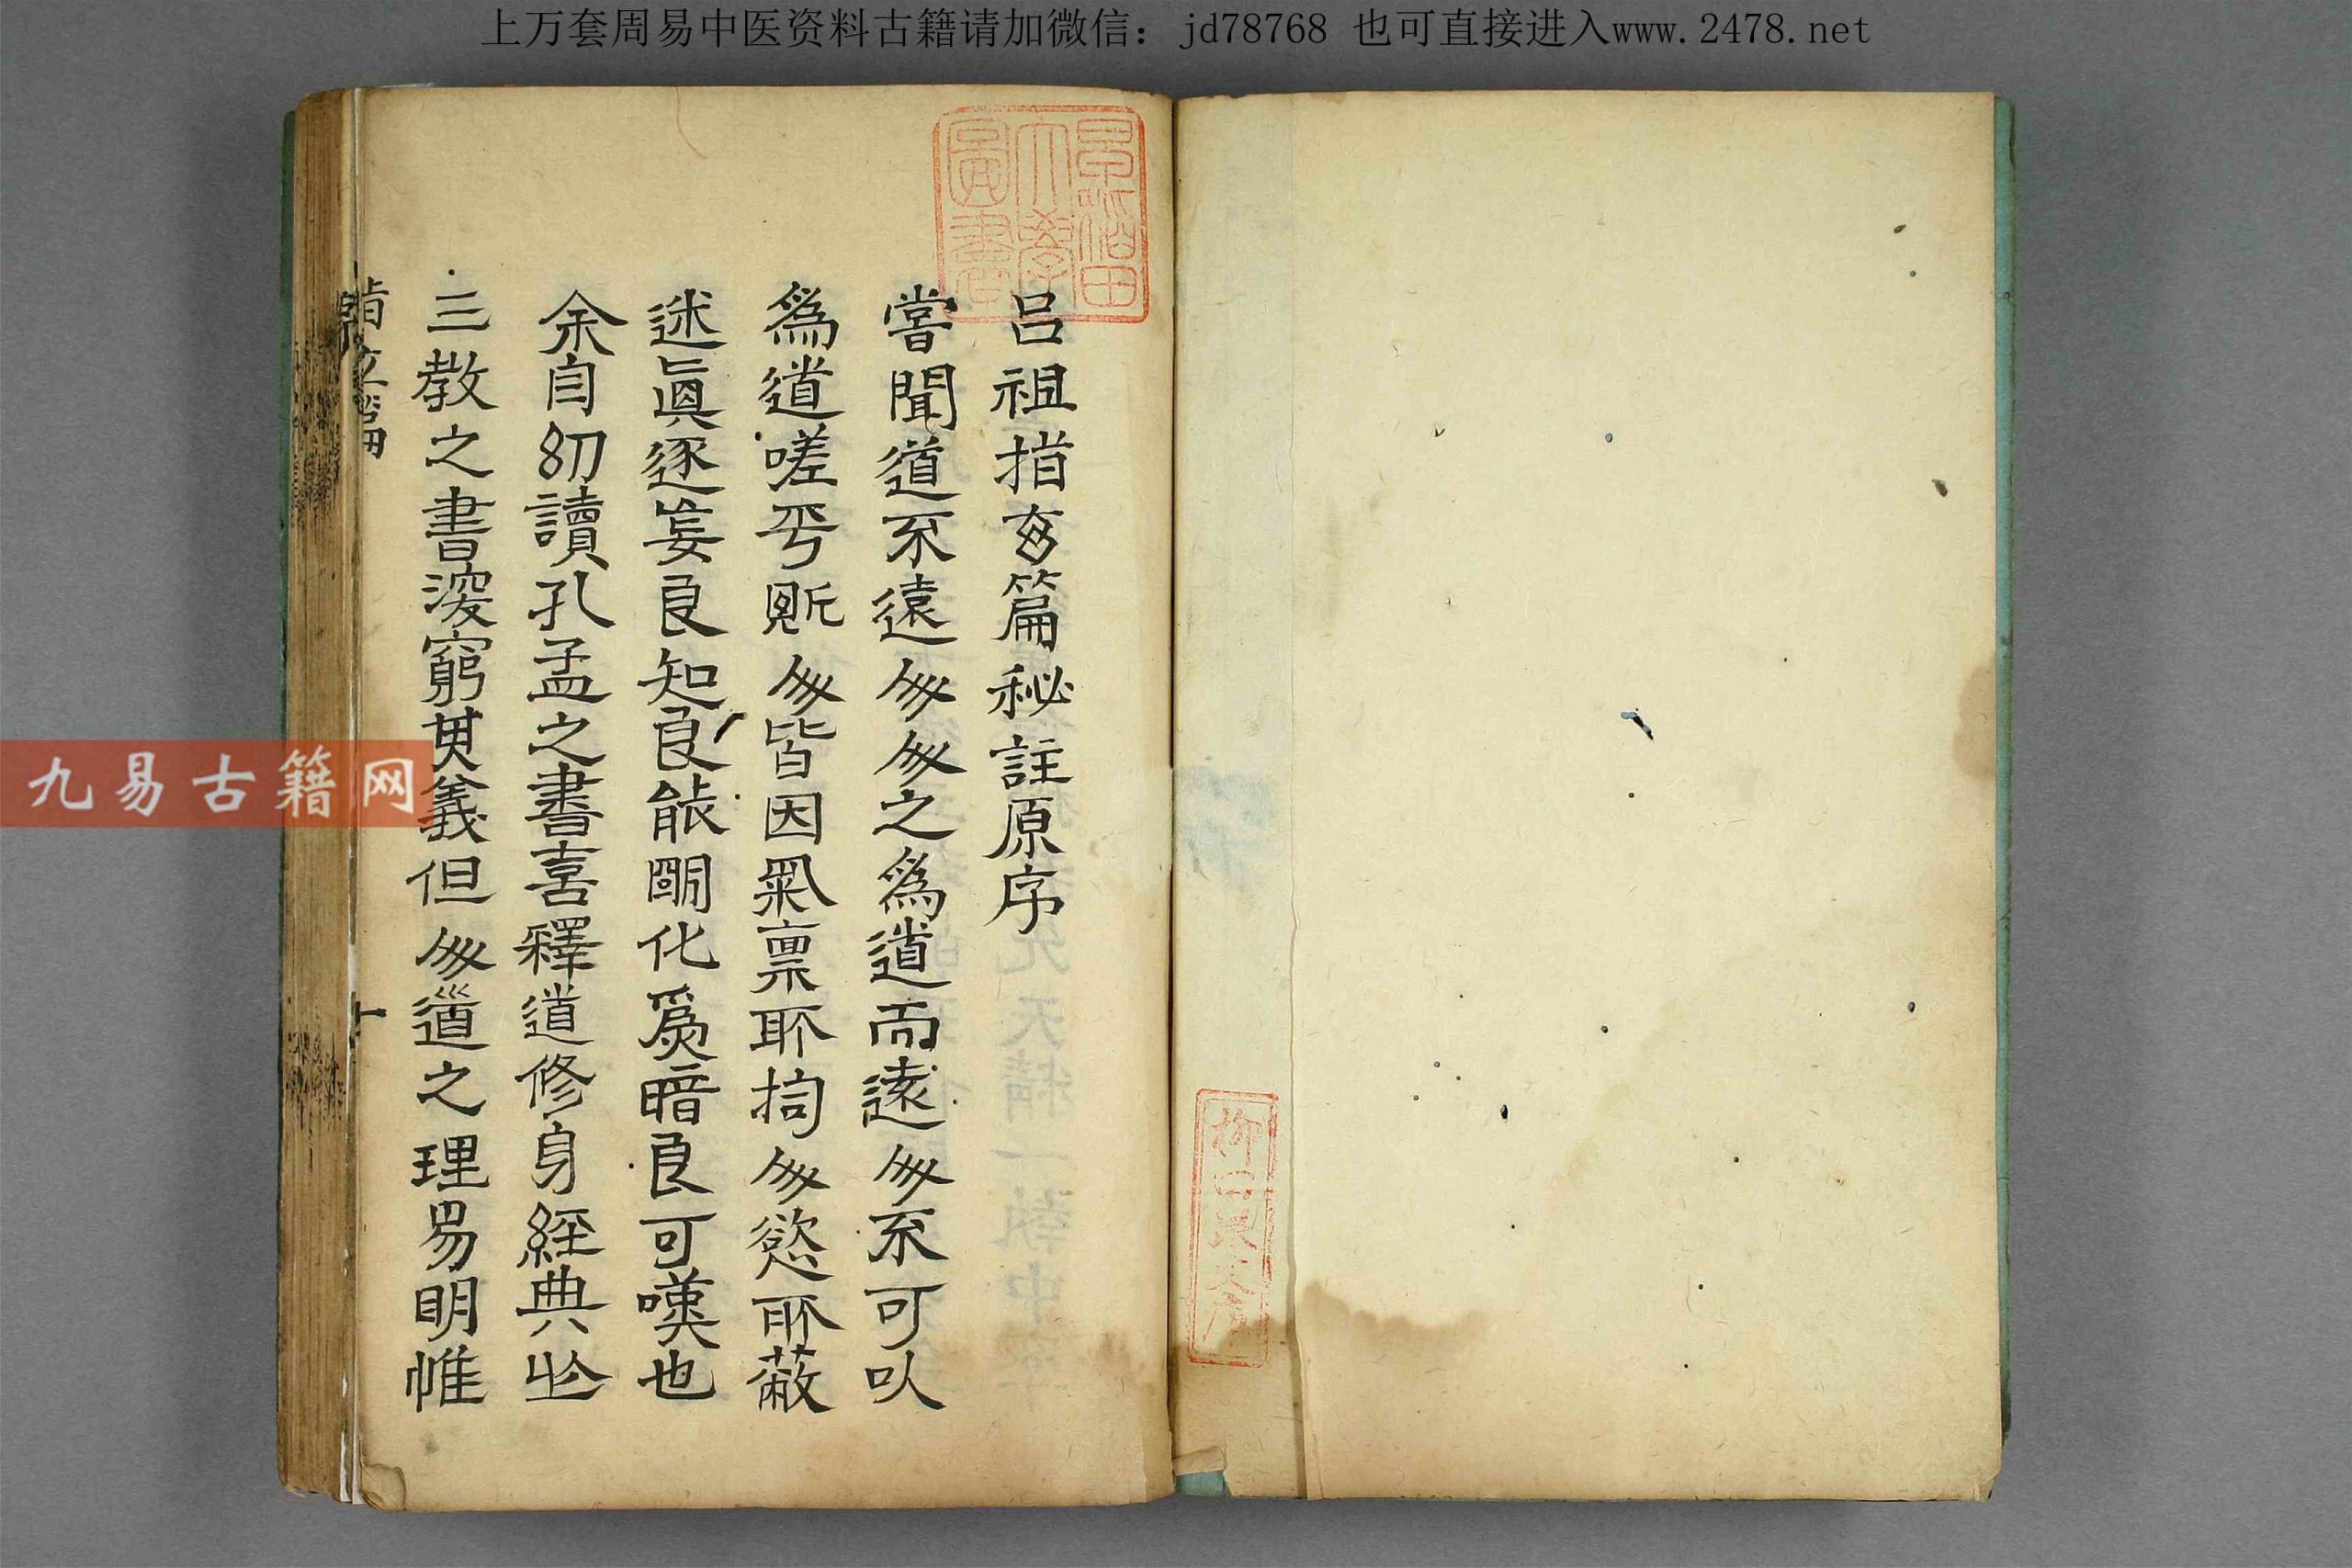 上万套周易中医资料古籍请加微信：jd78768 也可直接进入www.2478.net
呂祖指玄篇秘註原序
嘗聞道不遠人人之爲道而遠人不可以
爲道嗟乎賢人皆因氣禀所拘人慾所蔽
迷眞逐妄良知良能翾化爲暗良可嘆也
余自幼讀孔孟之書喜釋道修身經典些
三教之書深窮其義但人道之理易明惟
指玄篇
九易古籍网
早稻田大學圖書